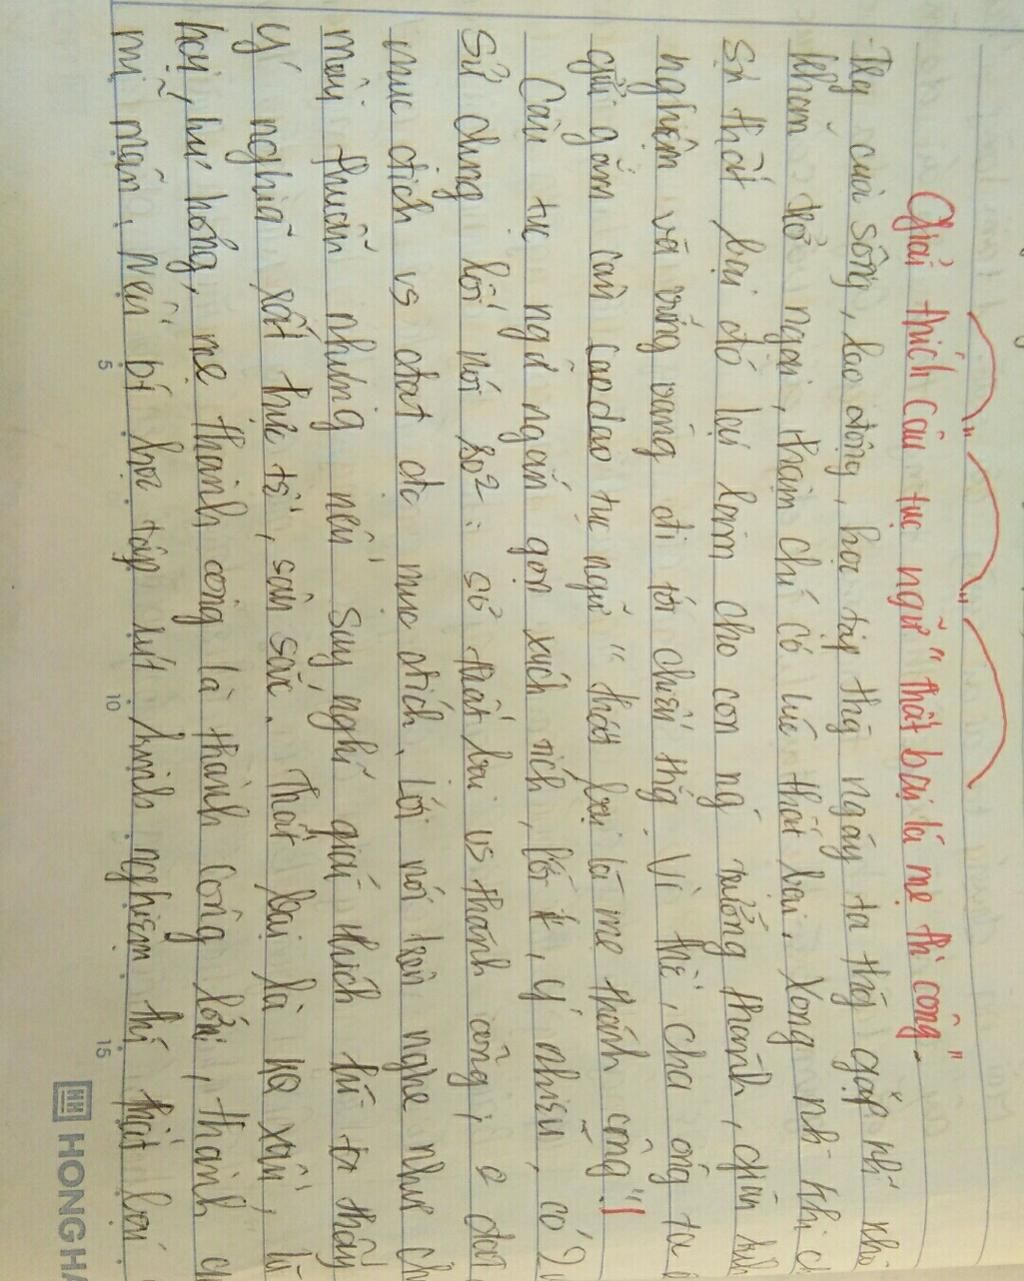 Giải thích câu tục ngữ "thất bại là mẹ th công".
Trg cuộc sống, lao động, học tập thg ngày ta thg gặp nh
khăn trở ngại, thậm chí có lúc thất bại. Xong nh khi
sự thất bại đó lại làm cho con ng trưởng thành, giàu kinh
nghiệm và vững vàng đi tới chiến thg. Vì thế, cha ông ta
gửi gắm câu ca dao tục ngữ "thất bại là mẹ thành công"!
Câu tục ngữ ngắn gọn xúc tích, lời ít, ý nhiều, có 2
Sử dụng lối nói so²: sử thất bại vs thành công, o đạt
mục đích vs đạt đc mục đích. Lối nói trên nghe như
mâu thuẫn nhưng nếu suy nghĩ giải thích từ ta thấy
ý nghĩa rất thực tế, sâu sắc. Thất bại là kq xấu,
hại, hư hỏng, mẹ thành công là thành công lớn, thành
mĩ mãn. Nếu bt học tập rút kinh nghiệm thì thất bại
5
10
15
HONGHA